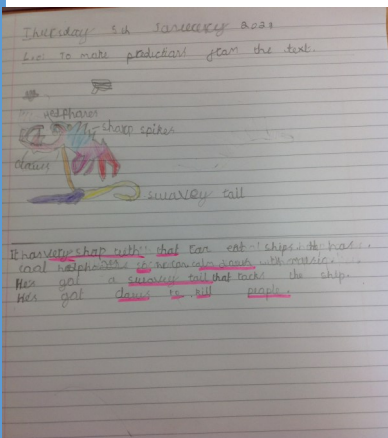 Thursday 5th January 2023
L.o: To make predictions from the text.
hedphones
sharp spikes
claws
swavey tail
It has very shap teeth that can eat ships. He has
cool hedphones so he can calm down with music.
Hes got a swavey tail that rocks the ship.
Hes got claws to kill people.